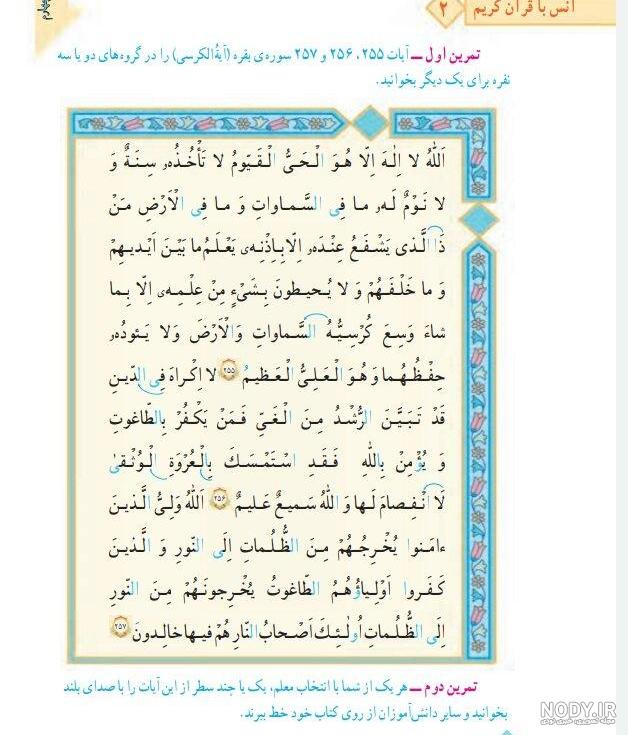 انس با قرآن کریم ۲
چهارم
تمرین اول ــ آیات ۲۵۵، ۲۵۶ و ۲۵۷ سوره‌ی بقره (آیةالکرسی) را در گروه‌های دو یا سه
نفره برای یک دیگر بخوانید.
اَللّٰهُ لا اِلٰهَ اِلّا هُوَ الْحَیُّ الْقَیّومُ لا تَأْخُذُهُ، سِنَةٌ وَ
لا نَوْمٌ لَهُ، ما فِی السَّماواتِ وَ ما فِی الْاَرْضِ مَنْ
ذَا الَّذی یَشْفَعُ عِنْدَهُ، اِلّا بِاِذْنِهِی یَعْلَمُ ما بَیْنَ اَیْدیهِمْ
وَ ما خَلْفَهُمْ وَ لا یُحیطونَ بِشَیْءٍ مِنْ عِلْمِهِی اِلّا بِما
شاءَ وَسِعَ کُرْسِیُّهُ السَّماواتِ وَالْاَرْضَ وَلا یَئودُهُ،
حِفْظُهُما وَ هُوَ الْعَلِیُّ الْعَظیمُ ۲۵۵ لا اِکْراهَ فِی الدّینِ
قَدْ تَبَیَّنَ الرُّشْدُ مِنَ الْغَیِّ فَمَنْ یَکْفُرْ بِالطّاغوتِ
وَ یُؤْمِنْ بِاللّٰهِ فَقَدِ اسْتَمْسَکَ بِالْعُرْوَةِ الْوُثْقیٰ
لَا انْفِصامَ لَها وَ اللّٰهُ سَمیعٌ عَلیمٌ ۲۵۶ اَللّٰهُ وَلِیُّ الَّذینَ
ءامَنوا یُخْرِجُهُمْ مِنَ الظُّلُماتِ اِلَی النّورِ وَ الَّذینَ
کَفَروا اَوْلِیاؤُهُمُ الطّاغوتُ یُخْرِجونَهُمْ مِنَ النّورِ
اِلَی الظُّلُماتِ اُولٰئِکَ اَصْحابُ النّارِ هُمْ فیها خالِدونَ ۲۵۷
تمرین دوم ــ هر یک از شما با انتخاب معلم، یک یا چند سطر از این آیات را با صدای بلند
بخوانید و سایر دانش‌آموزان از روی کتاب خود خط ببرند.
NODY.IR